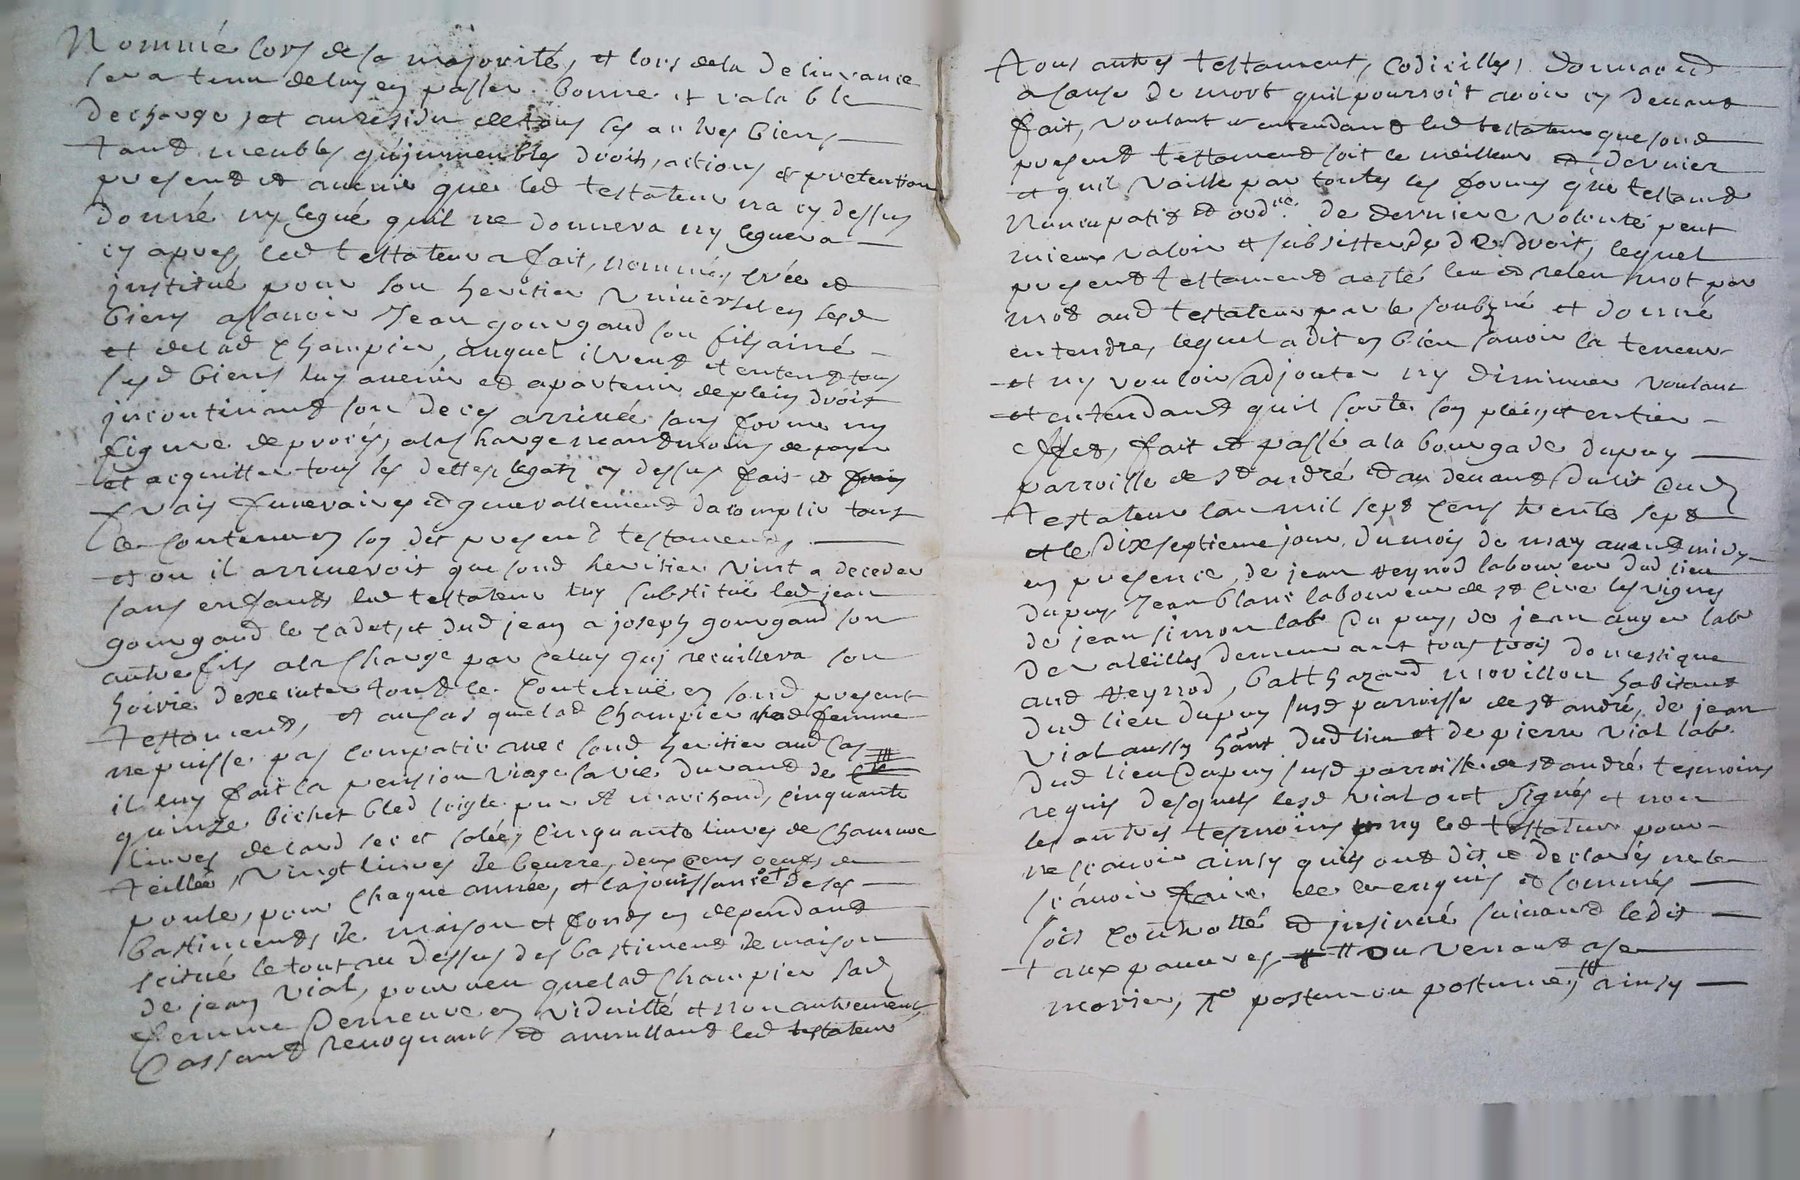 Nommé lors de sa majorité, et lors dela delivrance
sera tenu deluy en passer bonne et valable
decharge, et au residu de tous ses autres biens
tand meubles qu'jmmeubles droits, actions et pretention
present et avenir que led testateur na cy dessus
donné ny legué quil ne donnera ny leguera
cy apres, led testateur a fait, nommé, créé et
jnstitué pour son heritier universel en sesd
biens assavoir Jean gourgaud son fils ainé
et delad Champier, auquel il veut et entend tous
sesd biens luy avenir et apartenir de plein droit
jncontinand son deces arrivé sans forme ny
figure de procés, ala charge neandmoins de payer
et acquitter tous les dettes legatz cy dessus fais et
frais funeraires et generallement dacomplir tout
le contenu en son dit present testament,
et ou il arriveroit que sond heritier vint a deceder
sans enfants led testateur luy substitue led jean
gourgaud le cadet, et dud jean a joseph gourgaud son
autre fils ala charge par celuy quj recuillera son
hoirie dexecuter tout le contenuë en sond present
testament, et au cas quelad Champier sad femme
ne puisse pas compatir avec sond heritier aud cas
il luy fait la pension viage sa vie durand de
quinze bichet bled seigle pur et marchand, cinquante
livres delard sec et salée, cinquante livres de chanvre
teillée, vingt livres de beurre, deux cens oeufs de
poule, pour chaque année, et la jouissance de ses
bastiments de maison et fonds en dependant
scitué le tout au dessus des bastiment de maison
de jean vial, pourveu quelad Champier sad
femme demeure en viduitté et non autrement
Cassand revoquant et annulland led testateur
tous autres testament, codicilles, donnaon
a cause de mort quil pourroit avoir cy devant
fait, voulant et entendand led testateur que sond
present testament soit le meilleur et dernier
et quil vaille par toutes les formes que testamt
Nuncupatif et ordre de derniere volonté peut
mieux valoir et subsister de droit, lequel
present testament aesté leu et releu mot par
mot aud testateur par le soubzné et donné
entendre, lequel a dit en bien savoir la teneur
et ny vouloir adjouter ny diminuer voulant
et entendand quil sorte son plein et entier
effet, fait et passé a la bourgade dupuy
parroisse de st andré et au devand du lit dud
testateur lan mil sept cens trente sept
et le dixseptieme jour du mois de may avand midy
en presence de jean Heyrod laboureur dud lieu
dupuy, Jean blanc laboureur de st cire les vignes
de jean simon labr dupuy, de jean auger labr
de valeilles demeurant tous trois domestique
aud Heyrod, balthazard movillon habitand
dud lieu dupuy susd parroisse de st andré, de jean
vial aussy hânt dud lieu et de pierre vial labr
dud lieu dupuy susd parroisse de st andré tesmoins
requis desquels lesd vial ont signés et non
les autres tesmoins ny led testateur pour
ne scavoir ainsy quils ont dit et declarés ne le
scavoir faire de ce enquis et sommés
soit controllé et jnsinué suivand ledit
aux pauvres ou venant ase
marier, postume ou postumes, ainsy